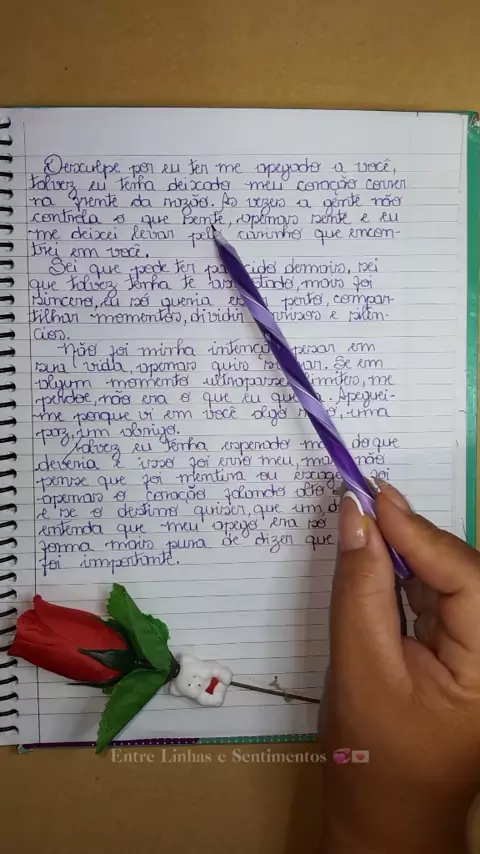 Desculpe por eu ter me apegado a você,
talvez eu tenha deixado meu coração correr
na frente da razão. Às vezes a gente não
controla o que sente, apenas sente e eu
me deixei levar pelo carinho que encon-
trei em você.
Sei que pode ter parecido demais, sei
que talvez tenha te assustado, mais foi
sincero, eu só queria estar perto, compar-
tilhar momentos, dividir sorrisos e silên-
cios.
Não foi minha intenção pesar em
sua vida, apenas quis somar. Se em
algum momento ultrapassei limites, me
perdoe, não era o que eu queria. Apeguei-
me porque vi em você algo raro, uma
paz, um abrigo.
Talvez eu tenha esperado mais do que
deveria e isso foi erro meu, mas não
pense que foi mentira ou exagero, foi
apenas o coração falando alto
e se o destino quiser, que um dia
entenda que meu apego era só
forma mais pura de dizer que
foi importante.
Entre Linhas e Sentimentos 💞💌